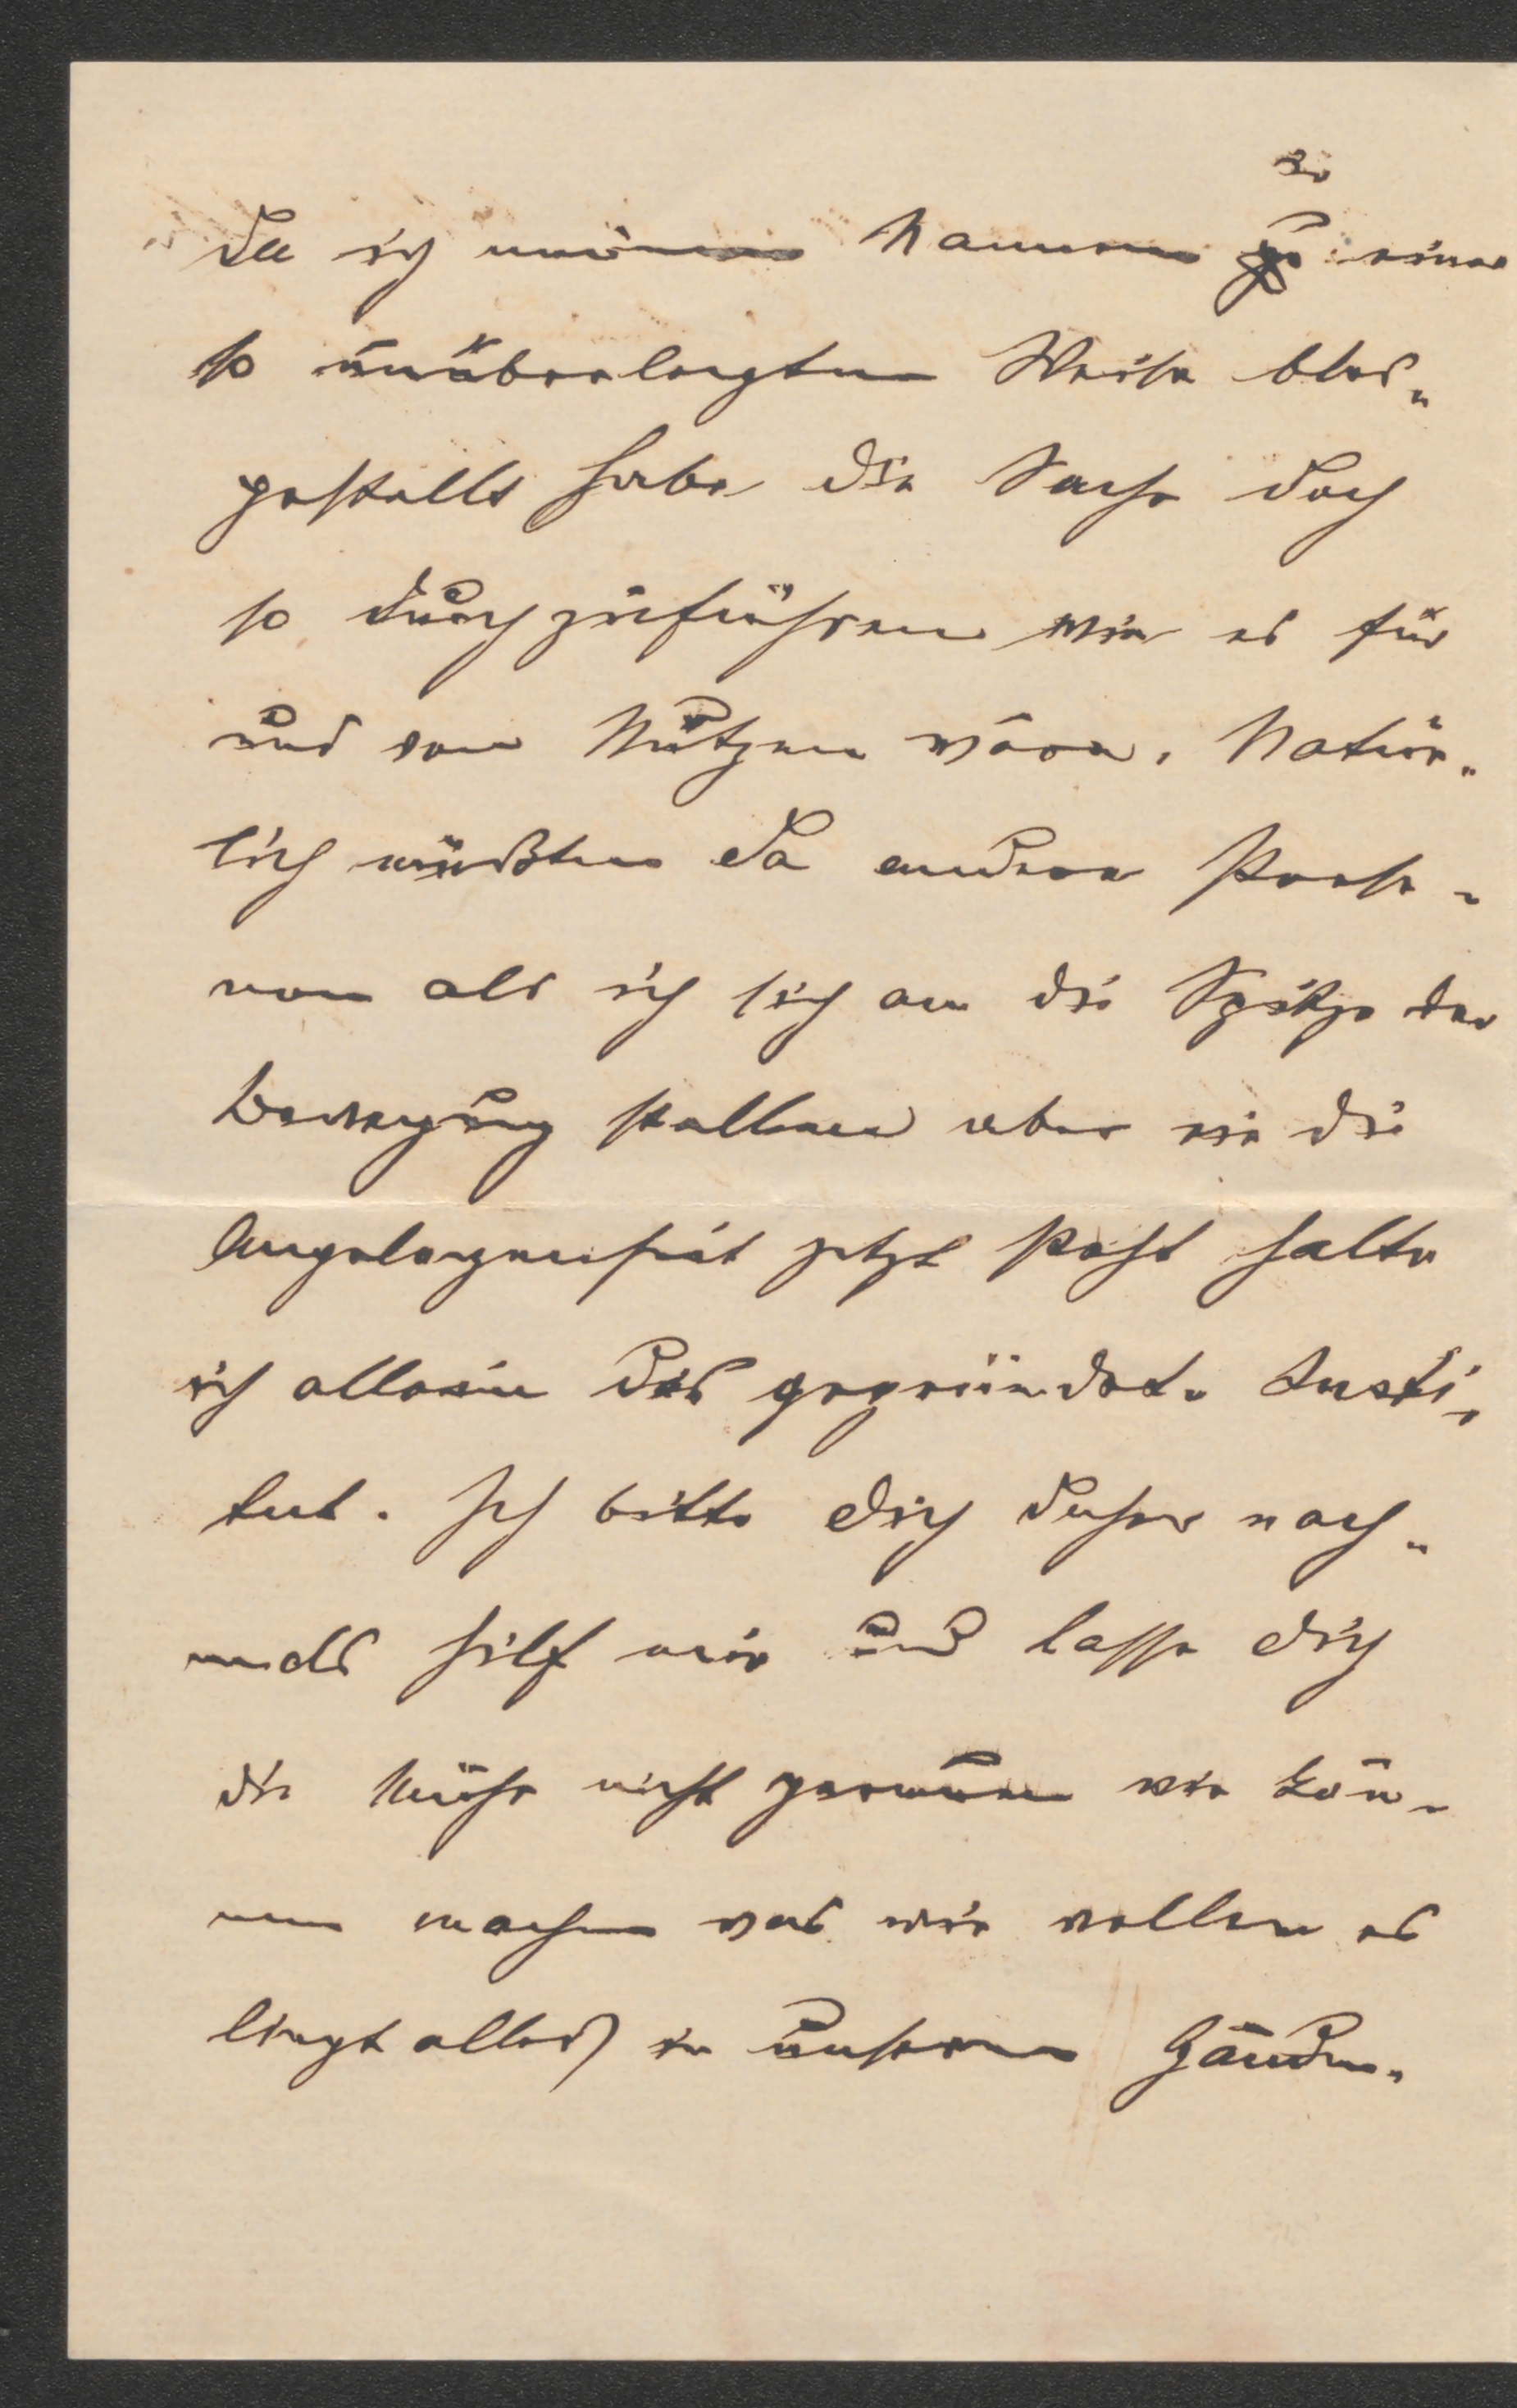 zu
Da ich meinen Namen einer
so unüberlegten Weise blos-
gestellt habe die Sache doch
so durchzuführen wie es für
uns von Nutzen wäre. Natür-
lich müßten da andere Perso-
nen als ich sich an die Spitze der
Bewegung stellen aber wie die
Angelegenheit jetzt steht halte
ich allein das gegründete Insti-
tut. Ich bitte dich daher noch-
mals hilf mir und lasse dich
die Mühe nicht gereuen wir kön-
nen machen was wir wollen es
liegt alles in unseren Händen.